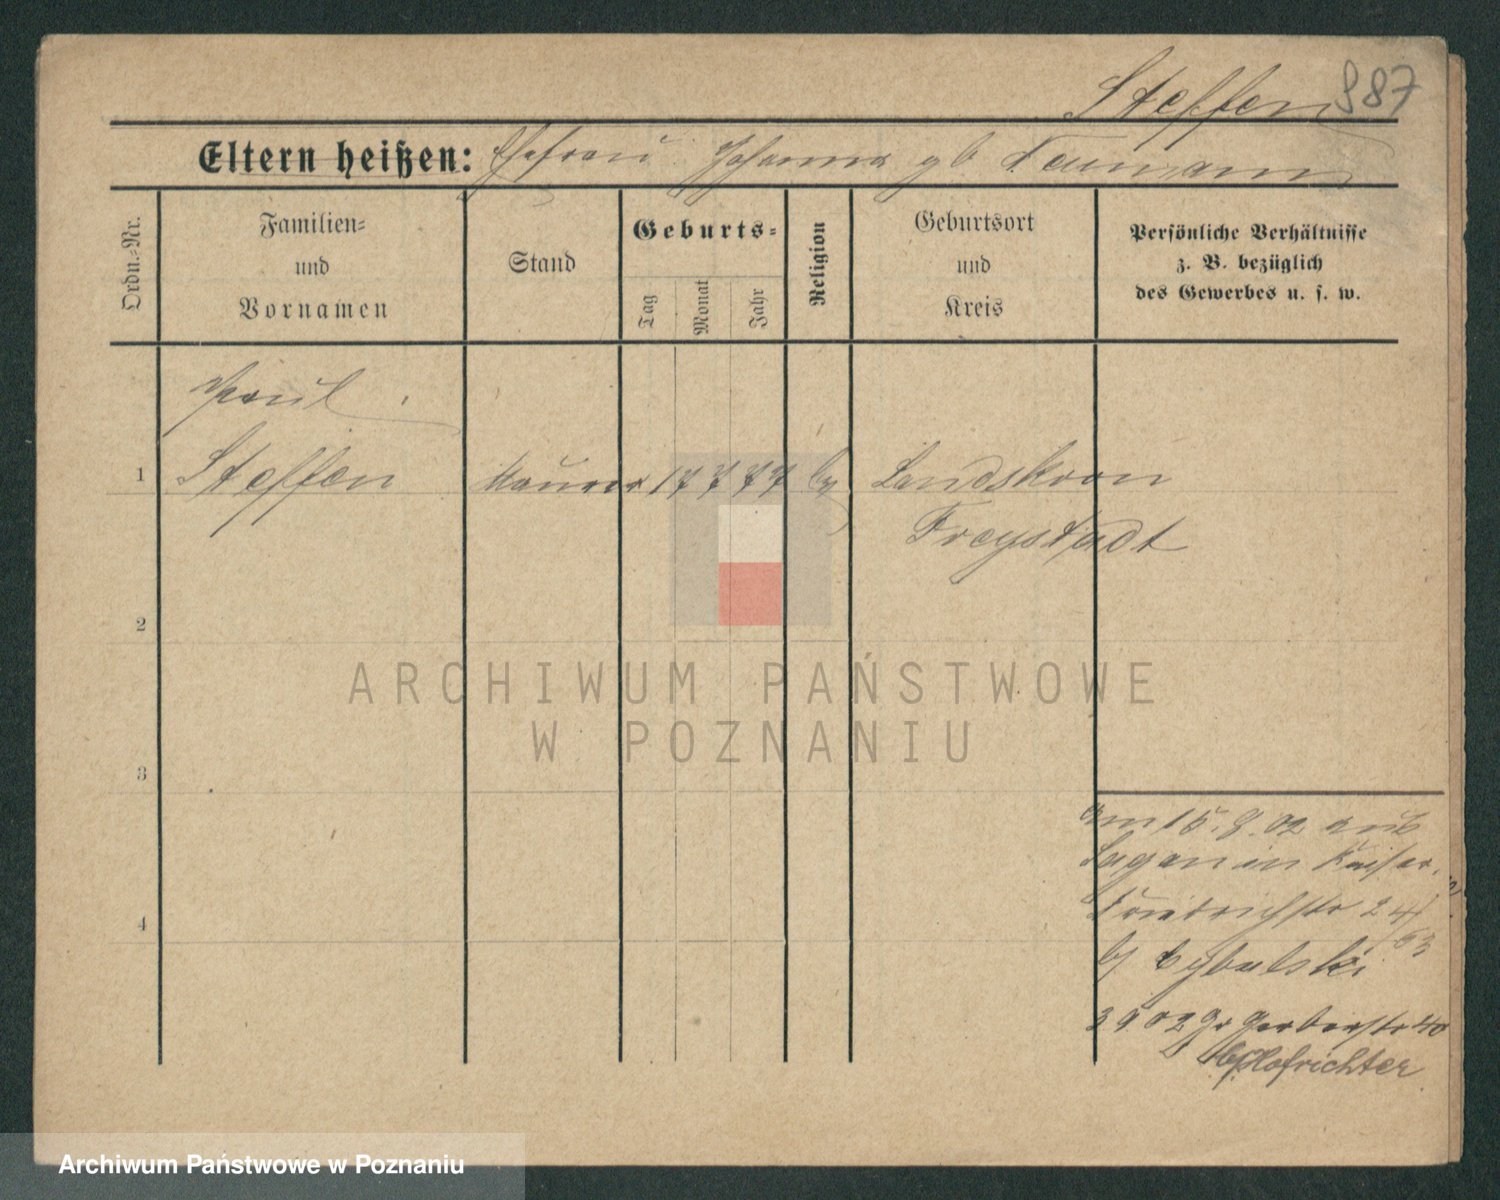 Steffen 987
Eltern heißen: Ehefrau Johanna gb
Ordn.-Nr.
Familien-
und
Vornamen
Stand
Geburts-
Tag
Monat
Jahr
Religion
Geburtsort
und
Kreis
Persönliche Verhältnisse
z. B. bezüglich
des Gewerbes u. s. w.
Paul
1 Steffen Maurer 17 7 77 Landskron
Freystadt
2
3
4
am 15. 8. 02 aus
Sagan in Kaiser
Friedrichstr 24
b/ Cybulski
3 9 02 Gr Gerberstr 40
b/ Hofrichter
ARCHIWUM PAŃSTWOWE
W POZNANIU
Archiwum Państwowe w Poznaniu